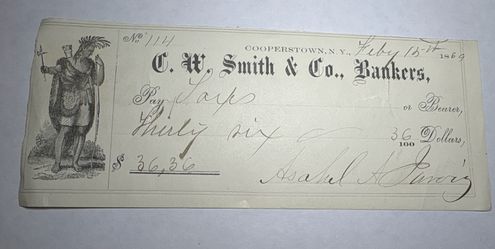 No. 114
COOPERSTOWN, N.Y., Feby 15th 1869
C. W. Smith & Co., Bankers,
Pay or Bearer,
Thirty six 36/100 Dollars,
$ 36,36
Asahel A